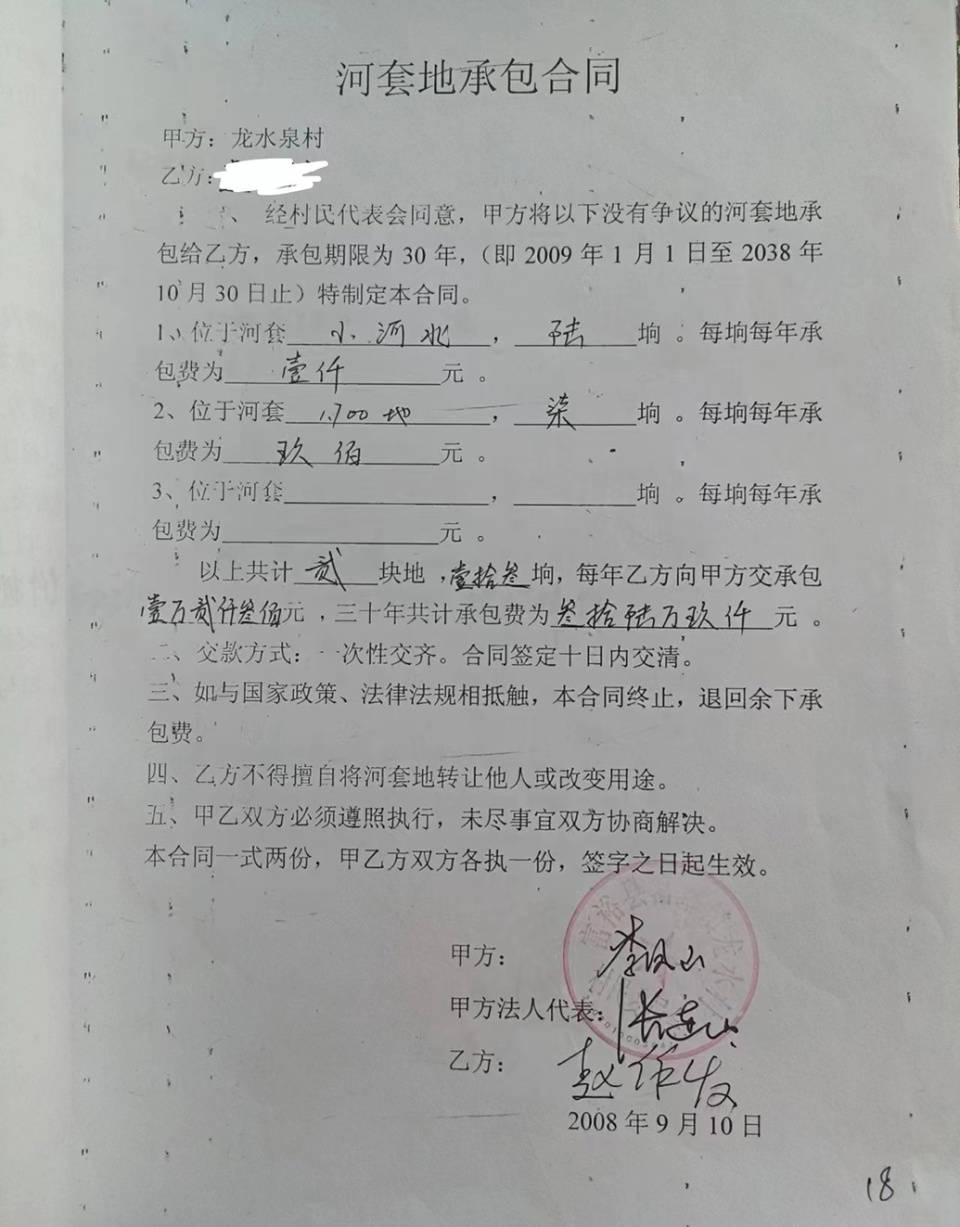 河套地承包合同
甲方：龙水泉村
乙方：
、经村民代表会同意，甲方将以下没有争议的河套地承
包给乙方，承包期限为 30 年，（即 2009 年 1 月 1 日至 2038 年
10 月 30 日止）特制定本合同。
1、位于河套小河北，陆垧 。每垧每年承
包费为壹仟元 。
2、位于河套1700地，柒垧 。每垧每年承
包费为玖佰元 。
3、位于河套，垧 。每垧每年承
包费为元 。
以上共计贰块地，壹拾叁垧，每年乙方向甲方交承包
壹万贰仟叁佰元，三十年共计承包费为叁拾陆万玖仟元 。
二、交款方式：一次性交齐。合同签定十日内交清。
三、如与国家政策、法律法规相抵触，本合同终止，退回余下承
包费。
四、乙方不得擅自将河套地转让他人或改变用途。
五、甲乙双方必须遵照执行，未尽事宜双方协商解决。
本合同一式两份，甲乙方双方各执一份，签字之日起生效。
富裕县 龙水
甲方：李凤山
甲方法人代表：张连山
乙方：赵作发
2008 年 9 月 10 日
18